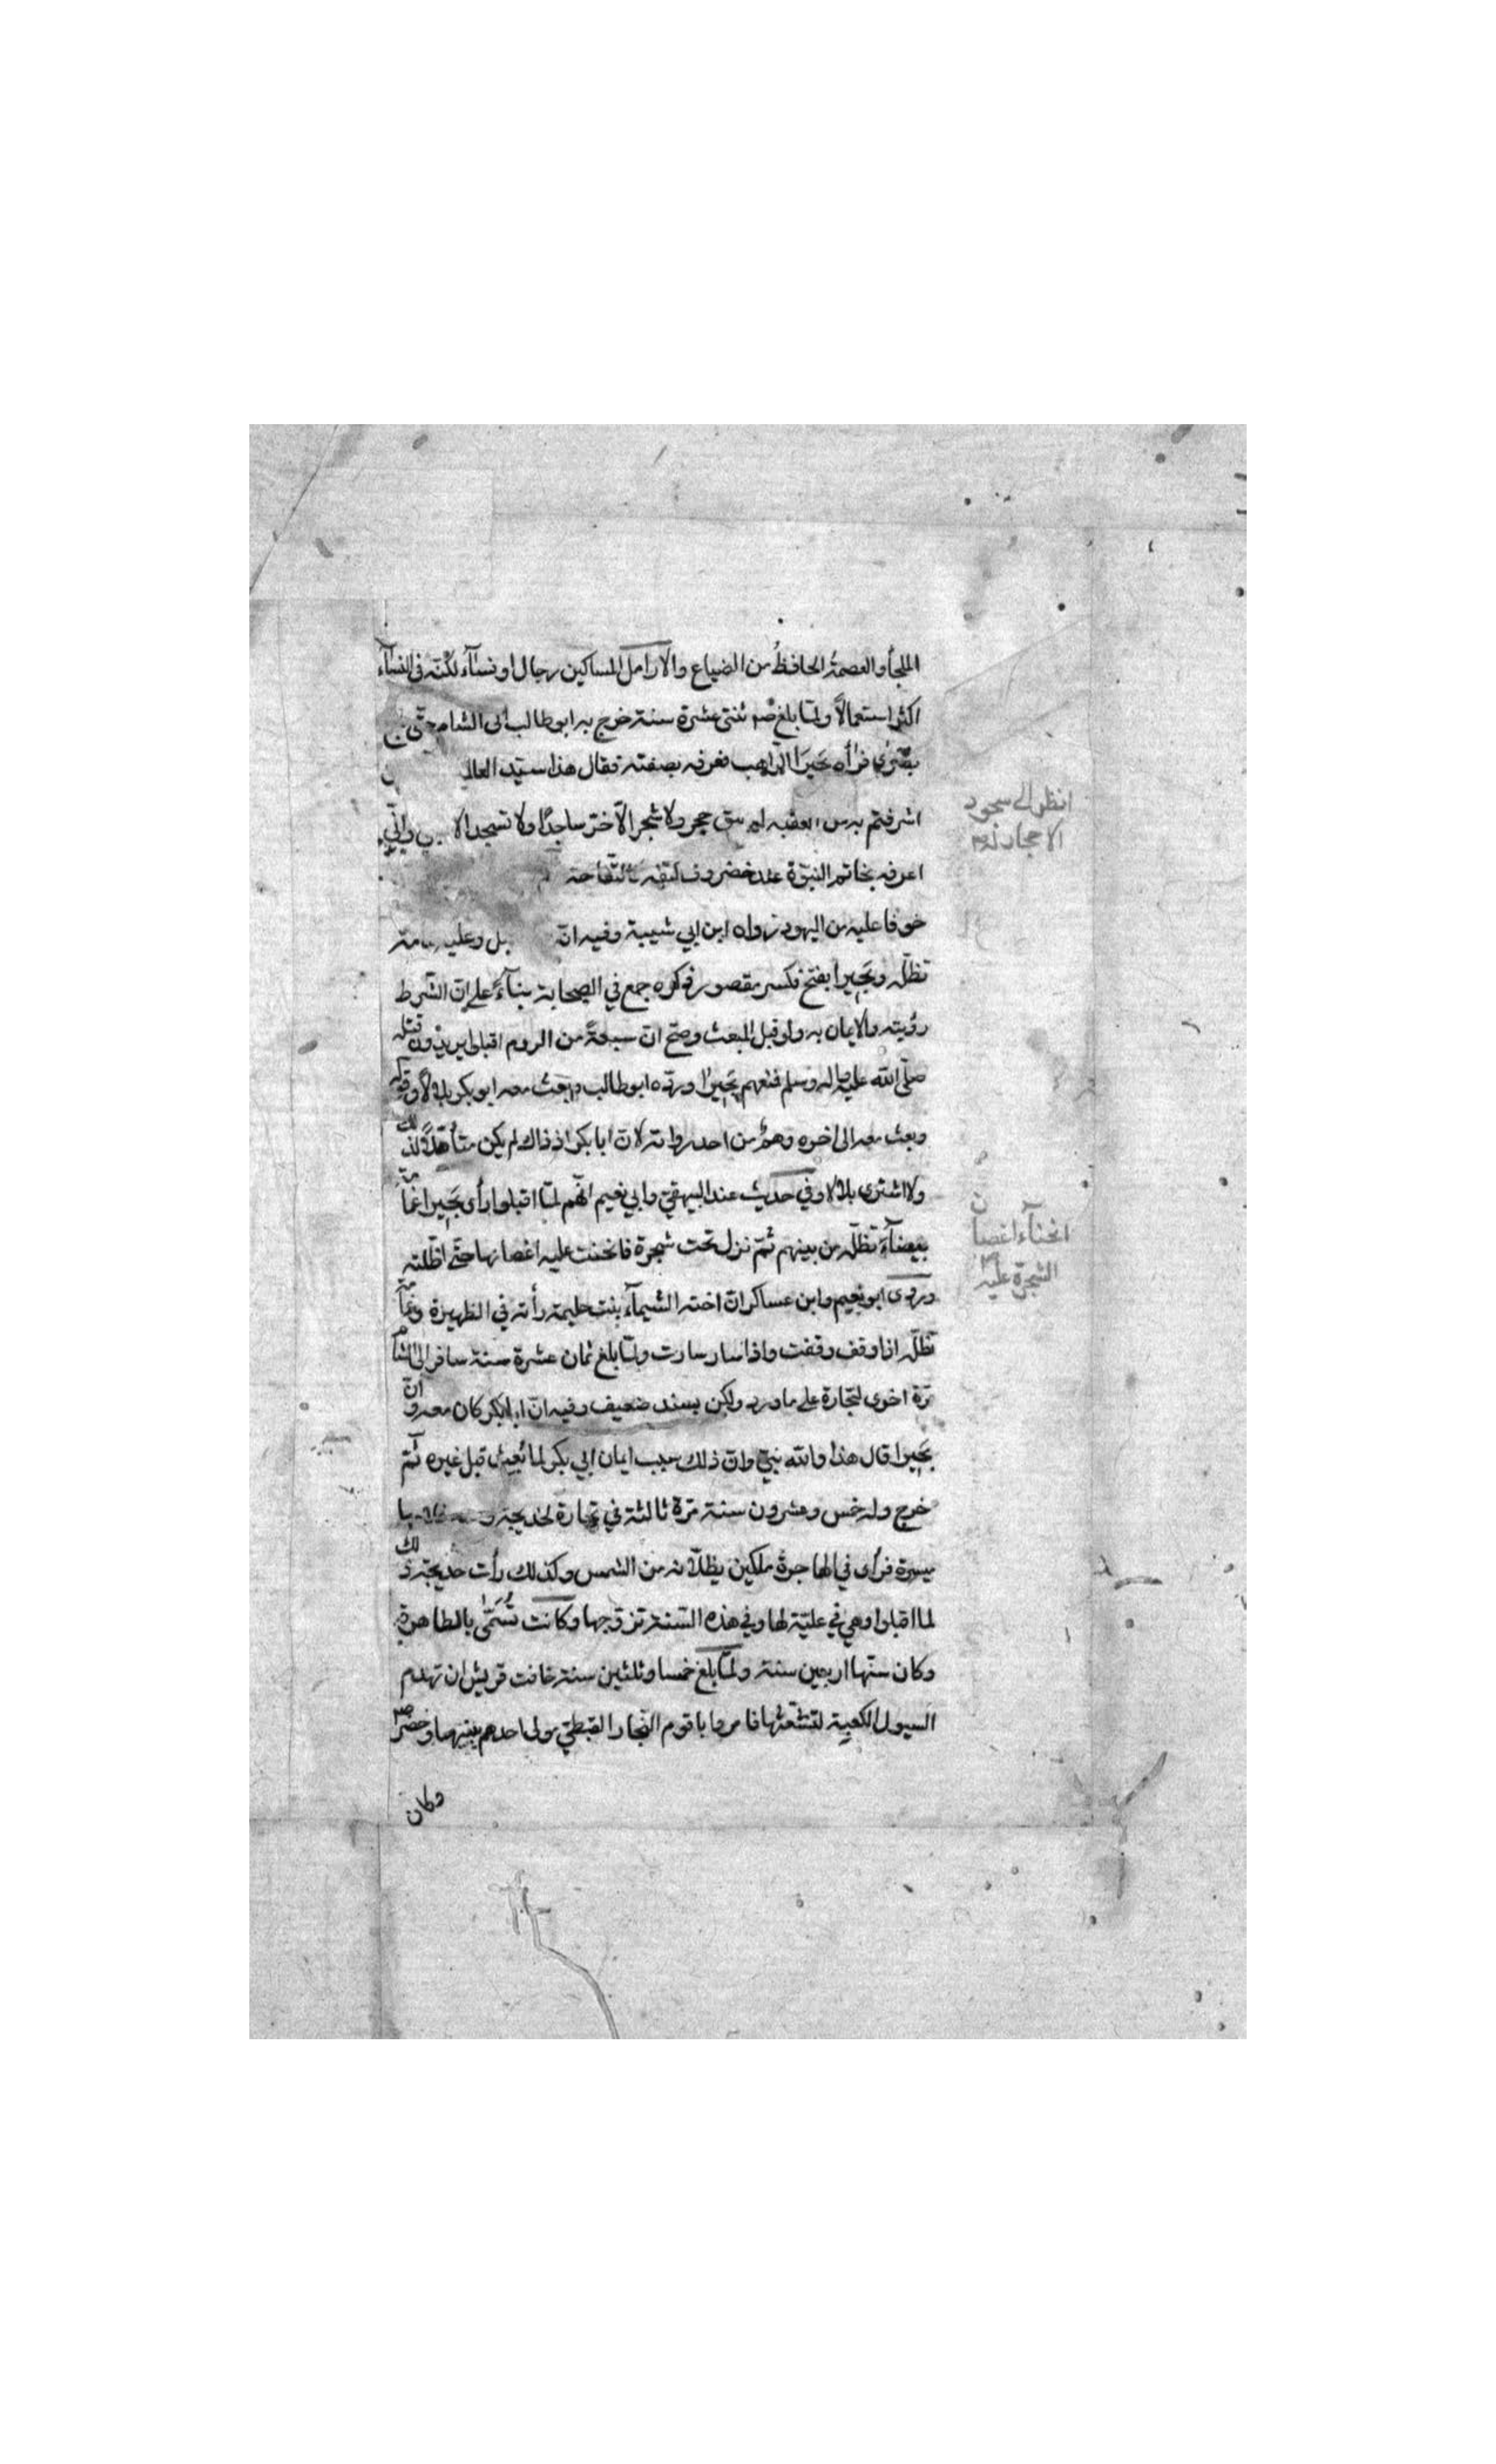 الملجأ والعصمةُ الحافظُ من الضياع والارامل المساكين رجال او نسآء لكنّه فى النسآء
اكثر استعمالاً ولمّا بلغ صم ثنتى عشرة سنة خرج به ابو طالب الى الشام حتّى
بصْرٰى فرأه بَحيرَا الرّاهب فعرفه بصفته فقال هذا سيّد
اشرفتم به من العقبه لم يبق حجر ولا شجر الّا خرّ ساجدًا ولا تسجد الا وانّي
اعرفه بخاتم النبوّة عند غضروف كتفه كالتّفاحة
خوفا عليه من اليهود رواه ابن ابي شيبة وفيه انّه وعليه
تظلّه وبَحِيرا بفتح فكسر مقصور ذكره جمع في الصحابة بنآءً على انّ الشرط
رؤيته والايمان به ولو قبل المبعث وصحّ انّ سبعةً من الروم اقبلوا يريدون قتله
صلّى الله عليه واله وسلم فمنعهم بَحِيرا وردّه ابو طالب وبعث معه ابو بكر بلالًا وقوله
وبعث معه الى اخره وهمٌ من احد رواته لانّ ابا بكر اذ ذاك لم يكن متأهّلًا لذلك
ولا اشترى بلالا وفي حديث عند البيهقيّ وابي نعيم انّهم لمّا اقبلوا رأى بَحِيرا غمامة
بيضآءَ تظلّه من بينهم ثمّ نزل تحت شجرة فانحنت عليه اغصانها حتّى اظلته
وروى ابو نعيم وابن عساكر انّ اخته الشيمآء بنت حليمة رأته في الظهيرة وغمامة
تظلّه اذا وقف وقفت واذا سار سارت ولمّا بلغ ثمان عشرة سنة سافر الى الشام
مرّة اخرى لتجارة على ما ورد ولكن بسند ضعيف وفيه انّ ابا بكر كان معه وانّ
بَحِيرا قال هذا والله نبيّ وانّ ذلك سبب ايمان ابي بكر لما بُعِث قبل غيره ثم
خرج وله خمس وعشرون سنة مرّة ثالثة في تجارة لخديجة
ميسرة فرأى في الهاجرة ملكين يظلّانه من الشمس وكذلك رأت خديجة ذلك
لما اقبلوا وهي في عليّة لها وفي هذه السّنة تزوّجها وكانت تُسَمّٰى بالطاهرة
وكان سنّها اربعين سنة ولمّا بلغ خمسا وثلثين سنة خافت قريش ان تهدم
السيول الكعبة لتشعّثها فامروا باقوم النجار القبطيّ مولى احدهم يبنيها وحضر صم
وكان
انظر الى سجود
الاحجار له صم
انحنآء اغصان
الشجرة عليه صم